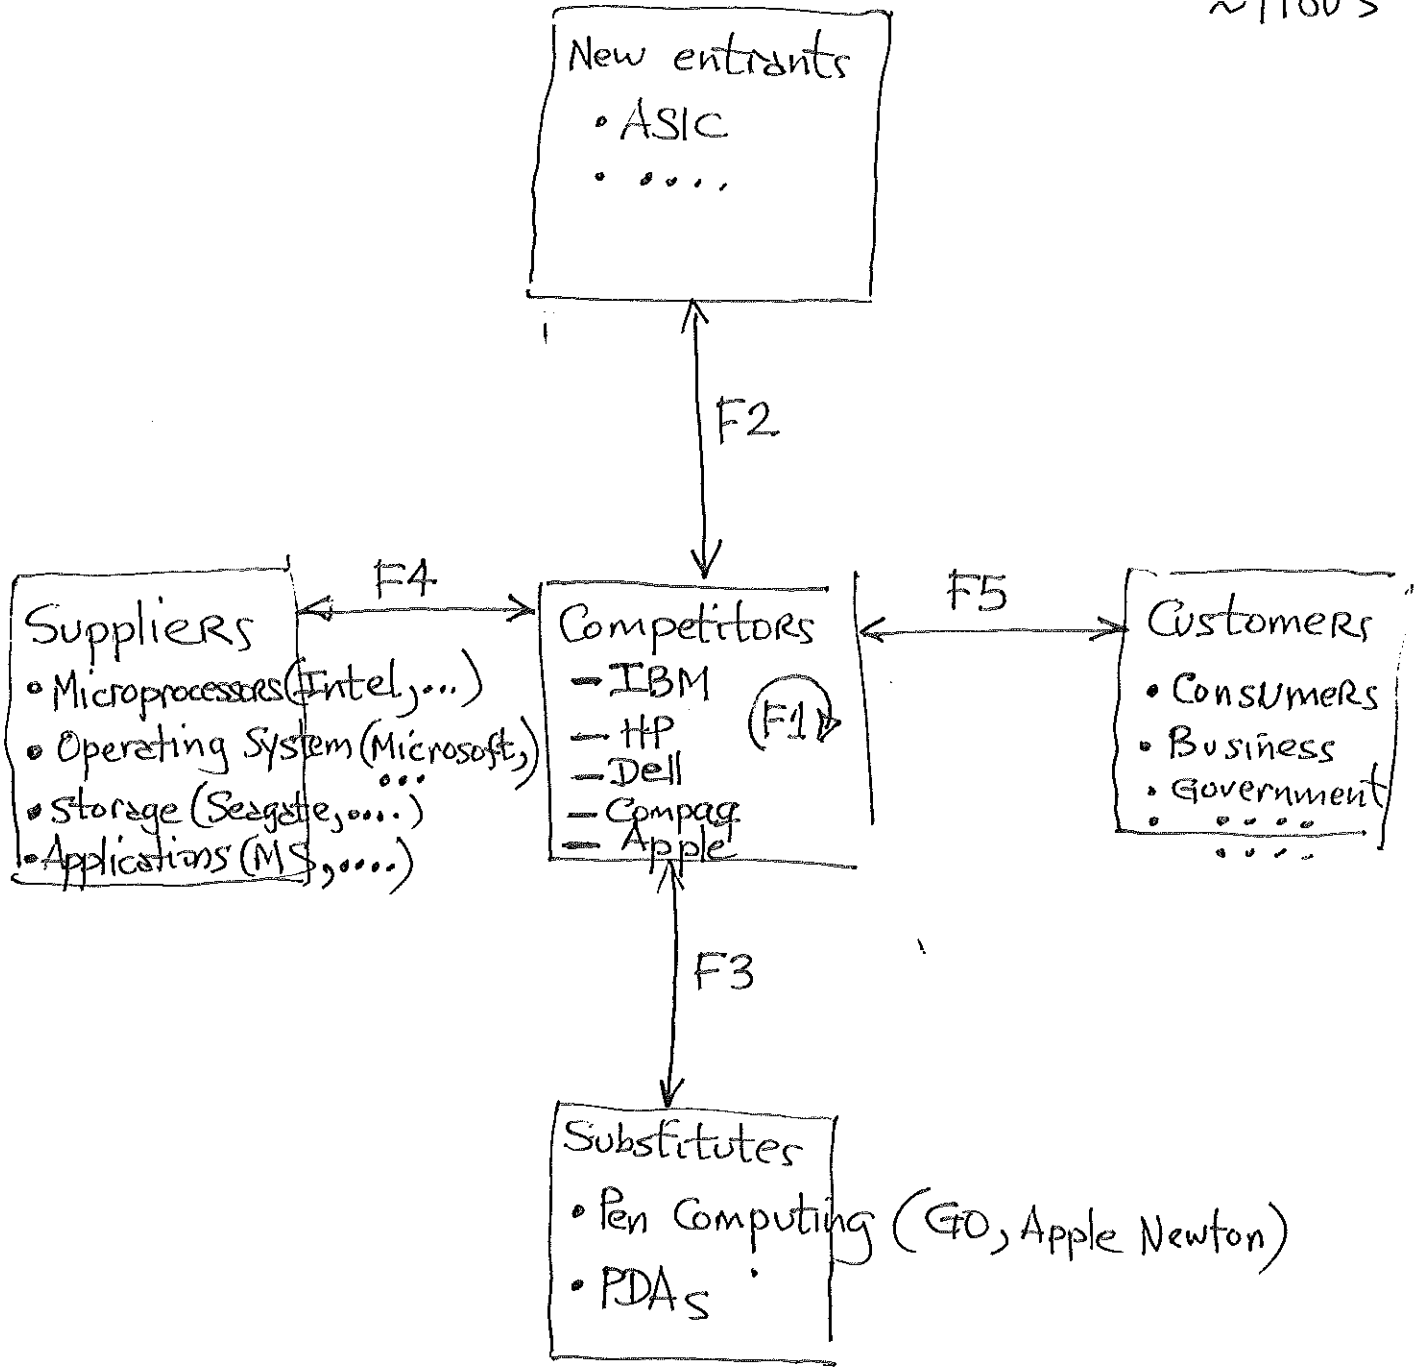 New entrants
• ASIC
• ....
F2
F4
F5
Suppliers
• Microprocessors (Intel,...)
• Operating System (Microsoft,)
...
• Storage (Seagate,....)
• Applications (MS,....)
Competitors
- IBM
- HP
- Dell
- Compaq
- Apple
F1
Customers
• Consumers
• Business
• Government
• ....
....
F3
Substitutes
• Pen Computing (GO, Apple Newton)
• PDAs